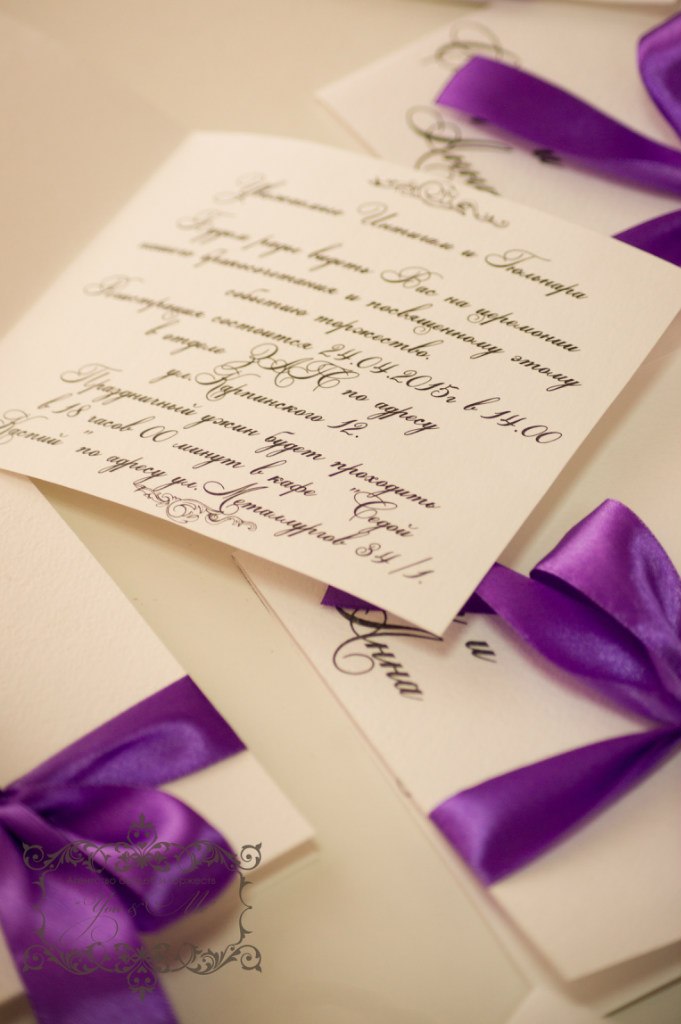 Уважаемые Иштиган и Гюльнара
Будем рады видеть Вас на церемонии
нашего бракосочетания и посвященному этому
событию торжество.
Регистрация состоится 24.04.2015г в 14.00
в отделе ЗАГС по адресу
ул. Карпинского 12.
Праздничный ужин будет проходить
в 18 часов 00 минут в кафе "Седой
Каспий" по адресу ул. Металлургов 84/1.
и
Анна
и
Анна
You & Me